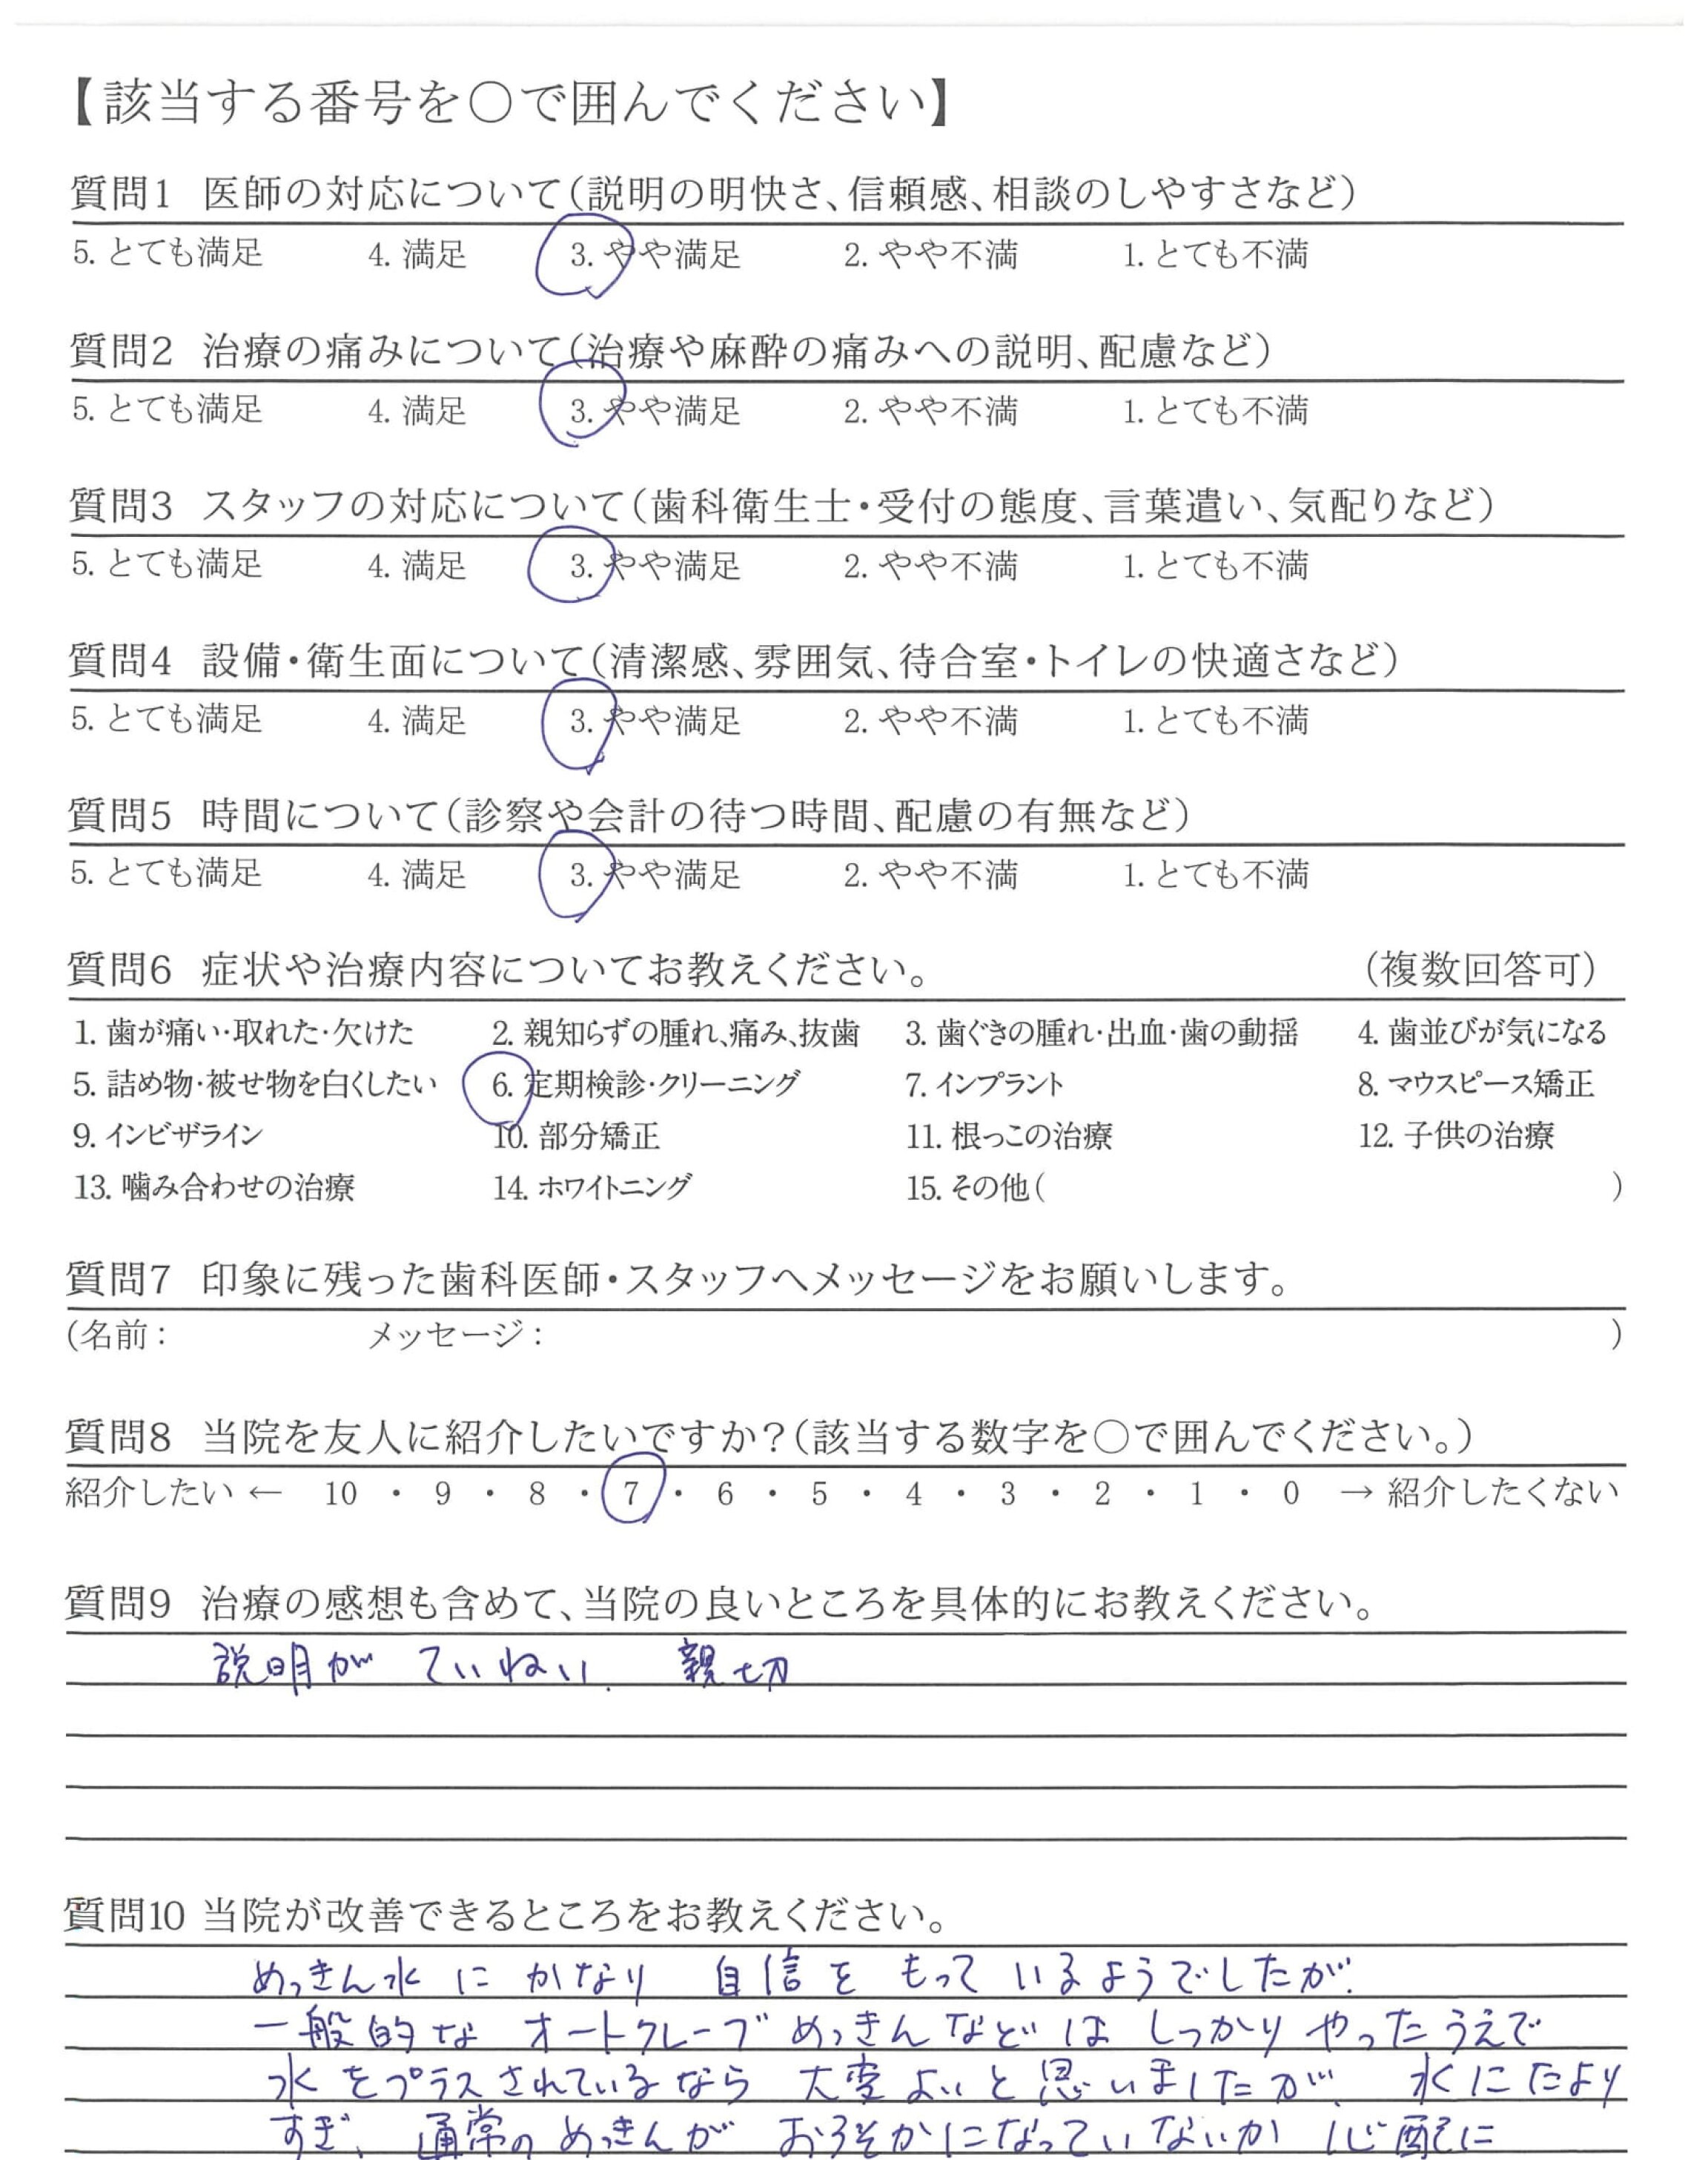 【該当する番号を○で囲んでください】
質問1 医師の対応について(説明の明快さ、信頼感、相談のしやすさなど)
5. とても満足 4. 満足 3. やや満足 2. やや不満 1. とても不満
質問2 治療の痛みについて(治療や麻酔の痛みへの説明、配慮など)
5. とても満足 4. 満足 3. やや満足 2. やや不満 1. とても不満
質問3 スタッフの対応について(歯科衛生士・受付の態度、言葉遣い、気配りなど)
5. とても満足 4. 満足 3. やや満足 2. やや不満 1. とても不満
質問4 設備・衛生面について(清潔感、雰囲気、待合室・トイレの快適さなど)
5. とても満足 4. 満足 3. やや満足 2. やや不満 1. とても不満
質問5 時間について(診察や会計の待つ時間、配慮の有無など)
5. とても満足 4. 満足 3. やや満足 2. やや不満 1. とても不満
質問6 症状や治療内容についてお教えください。 (複数回答可)
1. 歯が痛い・取れた・欠けた 2. 親知らずの腫れ、痛み、抜歯 3. 歯ぐきの腫れ・出血・歯の動揺 4. 歯並びが気になる
5. 詰め物・被せ物を白くしたい 6. 定期検診・クリーニング 7. インプラント 8. マウスピース矯正
9. インビザライン 10. 部分矯正 11. 根っこの治療 12. 子供の治療
13. 噛み合わせの治療 14. ホワイトニング 15. その他( )
質問7 印象に残った歯科医師・スタッフへメッセージをお願いします。
(名前: メッセージ: )
質問8 当院を友人に紹介したいですか?(該当する数字を○で囲んでください。)
紹介したい ← 10 ・ 9 ・ 8 ・ 7 ・ 6 ・ 5 ・ 4 ・ 3 ・ 2 ・ 1 ・ 0 → 紹介したくない
質問9 治療の感想も含めて、当院の良いところを具体的にお教えください。
説明が ていねい、 親切
質問10 当院が改善できるところをお教えください。
めっきん水に かなり 自信を もって いるようでしたが、
一般的な オートクレーブ めっきん などは しっかり やったうえで
水をプラスされているなら 大変よいと思いましたが、 水にたより
すぎ、 通常の めっきんが おろそかになっていないか 心配に